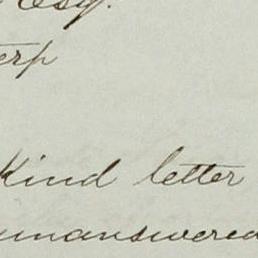 Esq.
erp
Kind letter
unanswered